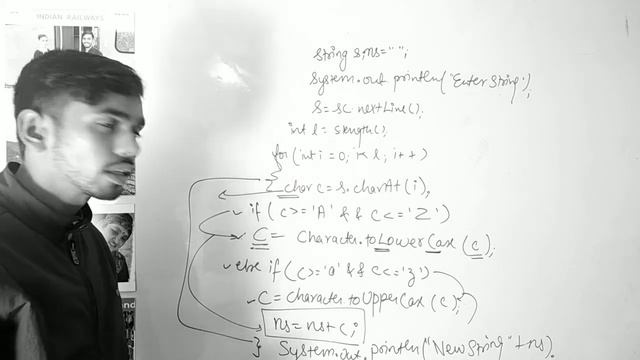 INDIAN RAILWAYS
string s,ns=" ";
System.out println("Enter String");
s=sc.nextLine();
int l= s.length();
for (int i=0; i<l; i++)
{ char c=s.charAt(i);
if (c>='A' && c<='Z')
C= Character.toLowerCase (c);
else if(c>='a' && c<='z')
C=character.toUpperCase (c);
ns=ns+c;
} System.out.println("New String"+ns).